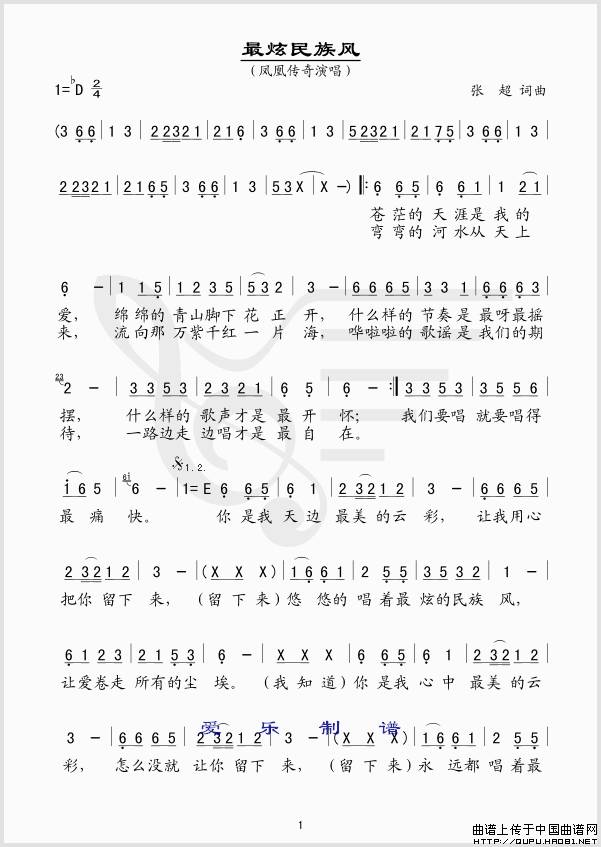 最炫民族风
(凤凰传奇演唱)
1=♭D 2/4
张 超 词曲
(3 6 6 | 1 3 | 2 2 3 2 1 | 2 1 6 | 3 6 6 | 1 3 | 5 2 3 2 1 | 2 1 7 5 | 3 6 6 | 1 3 |
2 2 3 2 1 | 2 1 6 5 | 3 6 6 | 1 3 | 5 3 X | X —) ‖: 6 6 5 | 6 6 1 | 1 2 1 |
苍茫的 天涯是 我的
弯弯的 河水从 天上
6 — | 1 1 5 | 1 2 3 5 | 5 3 2 | 3 — | 6 6 6 5 | 6 6 1 | 6 6 6 3 |
爱, 绵绵的 青山脚下 花 正 开, 什么样的 节奏是 最呀最摇
来, 流向那 万紫千红 一 片 海, 哗啦啦的 歌谣是 我们的期
23
2 — | 3 3 5 3 | 2 3 2 1 | 6 5 | 6 — :‖ 3 3 5 3 | 3 5 5 6 |
摆, 什么样的 歌声才是 最 开 怀; 我们要唱 就要唱得
待, 一路边走 边唱才是 最 自 在。
1.2.
1 6 5 | 6 — | 1=E 6 6 5 | 6 1 | 2 3 2 1 2 | 3 — | 6 6 6 5 |
最 痛 快。 你 是我 天边 最美的云 彩, 让我用心
2 3 2 1 2 | 3 — | (X X X) | 1 6 6 1 | 2 5 5 | 6 5 3 5 | 3 — |
把你 留下 来, (留 下 来) 悠 悠的 唱着最 炫的民族 风,
6 1 2 3 | 2 1 5 3 | 6 — | X X X | 6 6 5 | 6 1 | 2 3 2 1 2 |
让爱卷走 所有的尘 埃。 (我 知 道) 你 是我 心中 最美的云
爱 乐 制 谱
3 — | 6 6 6 5 | 2 3 2 1 2 | 3 — | (X X X) | 1 6 6 1 | 2 5 5 |
彩, 怎么没就 让你 留下 来, (留 下来) 永 远都 唱着最
1
曲谱上传于中国曲谱网
HTTP://QUPU.HAO81.NET